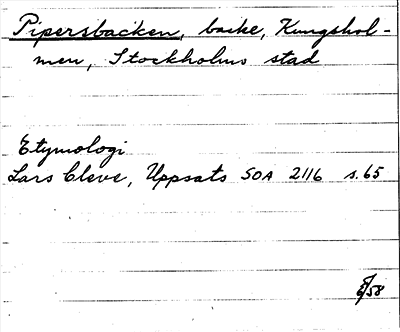 Pipersbacken, backe, Kungshol-
men, Stockholms stad
Etymologi
Lars Cleve, Uppsats SOA 2116 s.65
/58